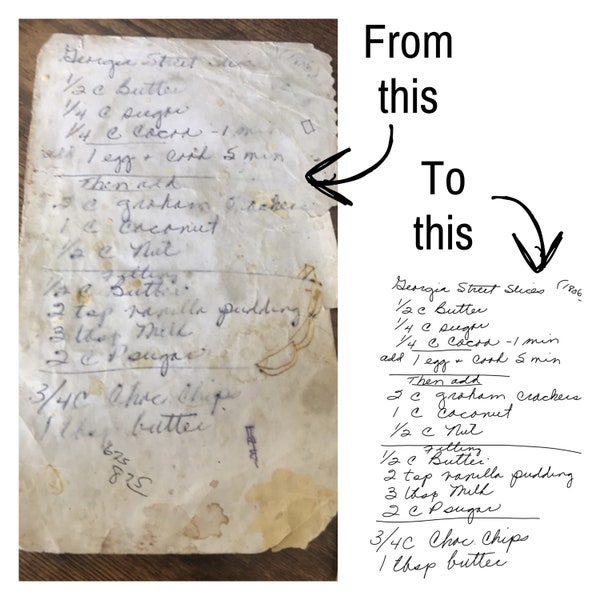 From
this
To
this
Georgia Street Slices
1/2 C Butter
1/4 C sugar
1/4 C Cocoa - 1 min
add 1 egg + cook 5 min
Then add
2 C graham Crackers
1 C Coconut
1/2 C Nut
Filling
1/2 C Butter
2 tsp vanilla pudding
3 tbsp Milk
2 C P sugar
3/4 C Choc Chips
1 tbsp butter
675
875
Georgia Street Slices (1936
1/2 C Butter
1/4 C sugar
1/4 C Cocoa - 1 min
add 1 egg + cook 5 min
Then add
2 C graham Crackers
1 C Coconut
1/2 C Nut
Filling
1/2 C Butter
2 tsp vanilla pudding
3 tbsp Milk
2 C P sugar
3/4 C Choc Chips
1 tbsp butter